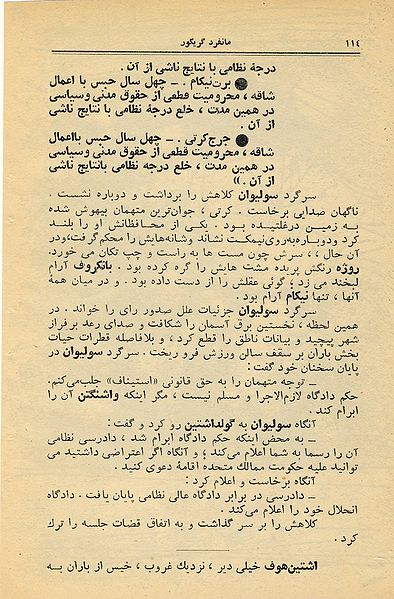 ۱۱٤ مانفرد گریگور
درجهٔ نظامی با نتایج ناشی از آن .
● برت‌نیکام . ــ چهل سال حبس با اعمال
شاقه ، محرومیت قطعی از حقوق مدنی وسیاسی
در همین مدت ، خلع درجهٔ نظامی با نتایج ناشی
از آن .
● جرج‌کرتی . ــ چهل سال حبس بااعمال
شاقه ، محرومیت قطعی از حقوق مدنی وسیاسی
در همین مدت ، خلع درجه نظامی بانتایج ناشی
از آن . »
سرگرد سولیوان کلاهش را برداشت و دوباره نشست .
ناگهان صدایی برخاست . کرتی ، جوان‌ترین متهمان بیهوش شده
به زمین درغلتیده بود . یکی از محافظانش او را بلند
کرد ودوباره‌به‌روی‌نیمکت نشاند وشانه‌هایش را محکم‌گرفت،ودر
آن حال ، ، سرش چون مست ها به راست و چپ تکان می خورد.
روژه رنگش پریده مشت هایش را گره کرده بود . بانکروف آرام
لبخند می زد ؛ گوئی عقلش را از دست داده بود . و در میان همهٔ
آنها ، تنها نیکام آرام بود .
سرگرد سولیوان جزئیات علل صدور رای را خواند . در
همین لحظه ، نخستین برق آسمان را شکافت و صدای رعد برفراز
شهر پیچید و بیانات ناطق را قطع کرد ، و بلافاصله قطرات حیات
بخش باران بر سقف سالن ورزش فرو ریخت . سرگرد سولیوان در
پایان سخنان خود گفت :
ــ توجه متهمان را به حق قانونی «استیناف» جلب‌می‌کنم.
حکم دادگاه لازم‌الاجرا و مسلم نیست ، مگر اینکه واشنگتن آن را
ابرام کند .
آنگاه سولیوان به گولداشتین رو کرد و گفت :
ــ به محض اینکه حکم دادگاه ابرام شد ، دادرسی نظامی
آن را رسما به شما اعلام می‌کند ؛ و آنگاه اگر اعتراضی داشتید می
توانید علیه حکومت ممالک متحده اقامهٔ دعوی کنید .
آنگاه برخاست و اعلام کرد :
ــ دادرسی در برابر دادگاه عالی نظامی پایان یافت . دادگاه
انحلال خود را اعلام می‌کند .
کلاهش را بر سر گذاشت و به اتفاق قضات جلسه را ترک
کرد .
اشتین‌هوف خیلی دیر ، نزدیک غروب ، خیس از باران به